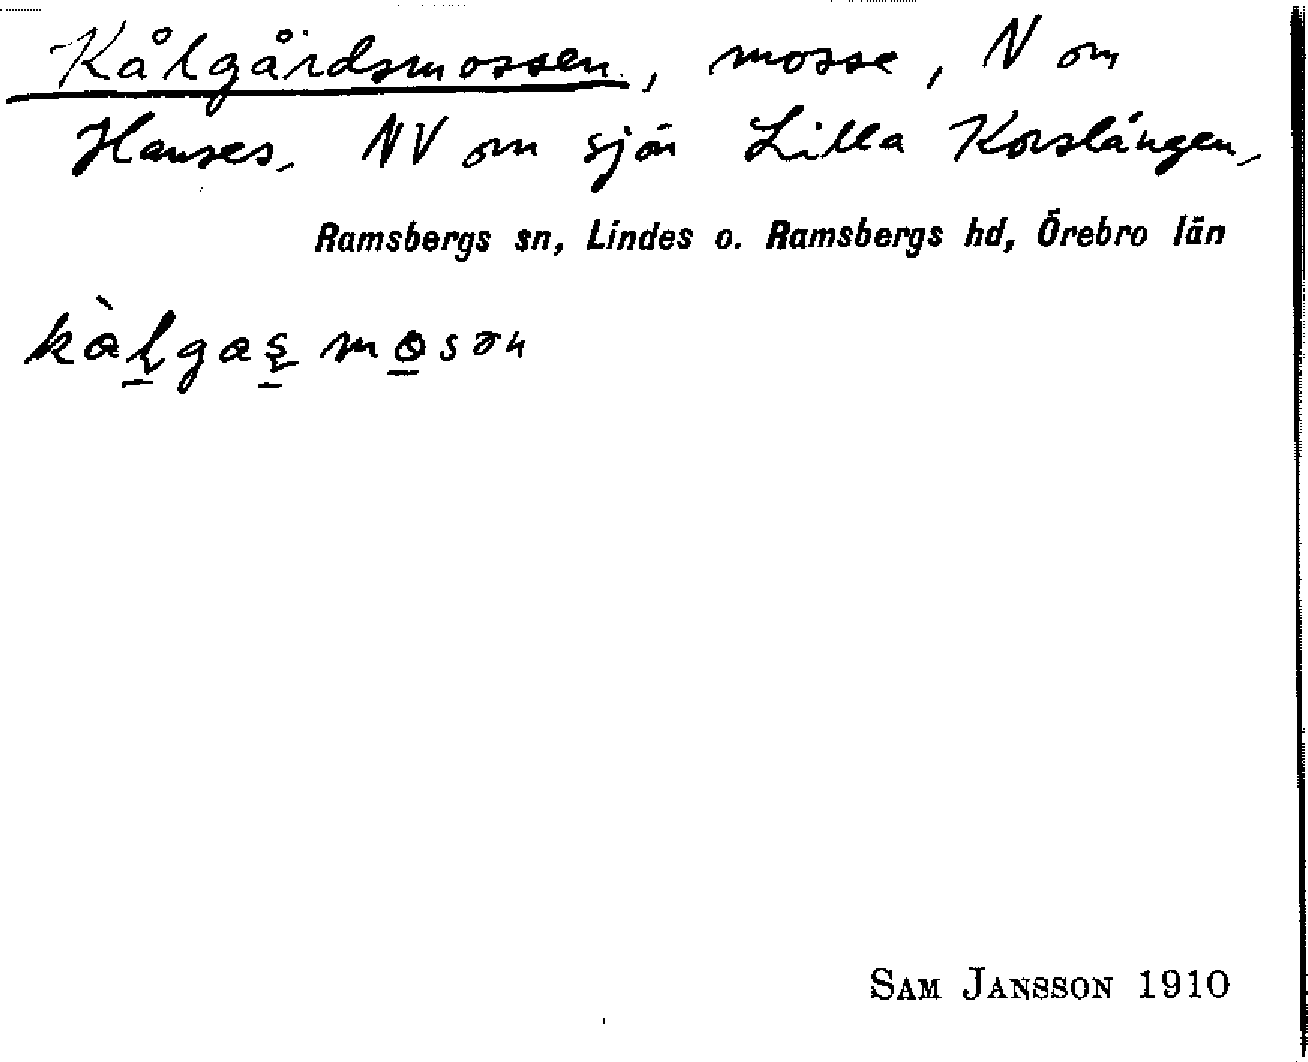 Kålgårdsmossen, mosse, N om
Hanses, NV om sjön Lilla Korslången,
Ramsbergs sn, Lindes o. Ramsbergs hd, Örebro län
kàlgas mosən
SAM JANSSON 1910